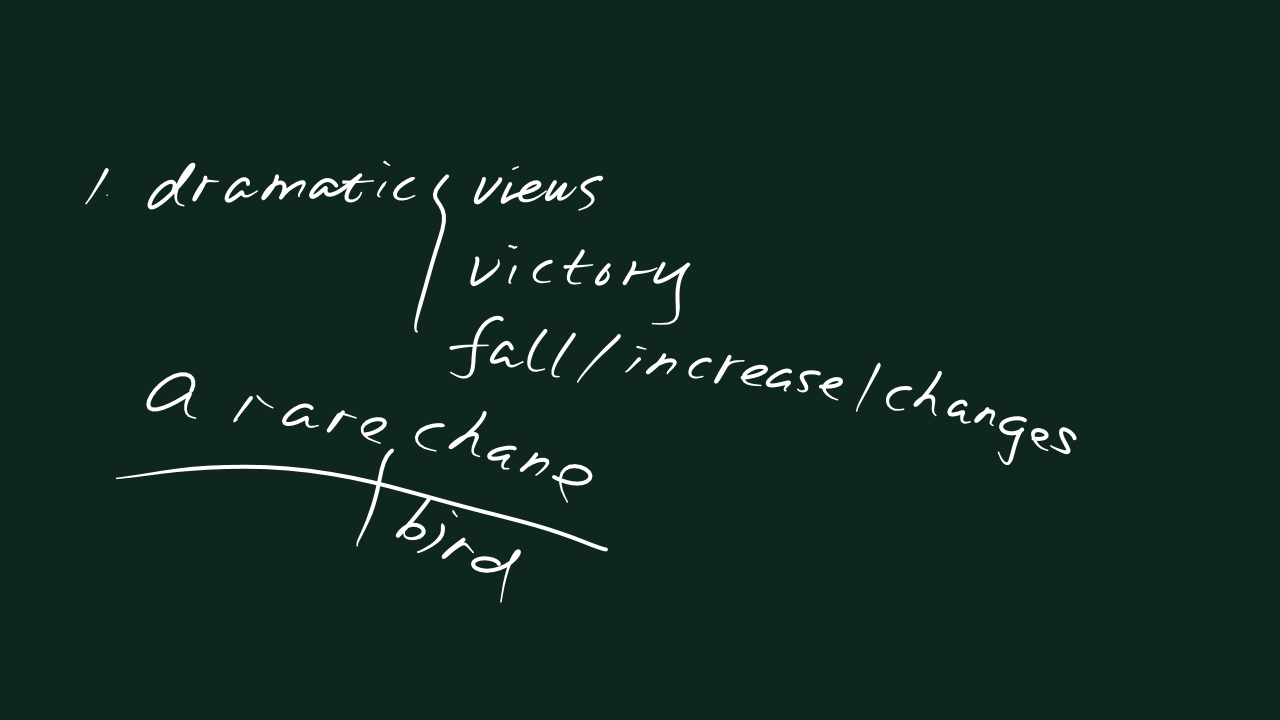 1. dramatic { views
victory
fall/increase/changes
A rare chane
/ bird